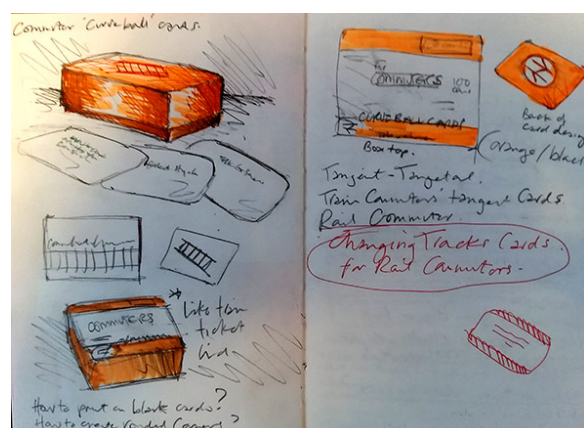 Commuter 'Curveball' cards.
COMMUTERS
Like train
ticket
How to print on blank cards?
How to create rounded Corners?
for
COMMUTERS
100
CURVEBALL CARDS
Box top.
Back of
card design
(orange/black
Tangent - Tangetal.
Train Commutors' tangent Cards
Rail Commuter.
Changing Tracks Cards
for Rail Commutors.